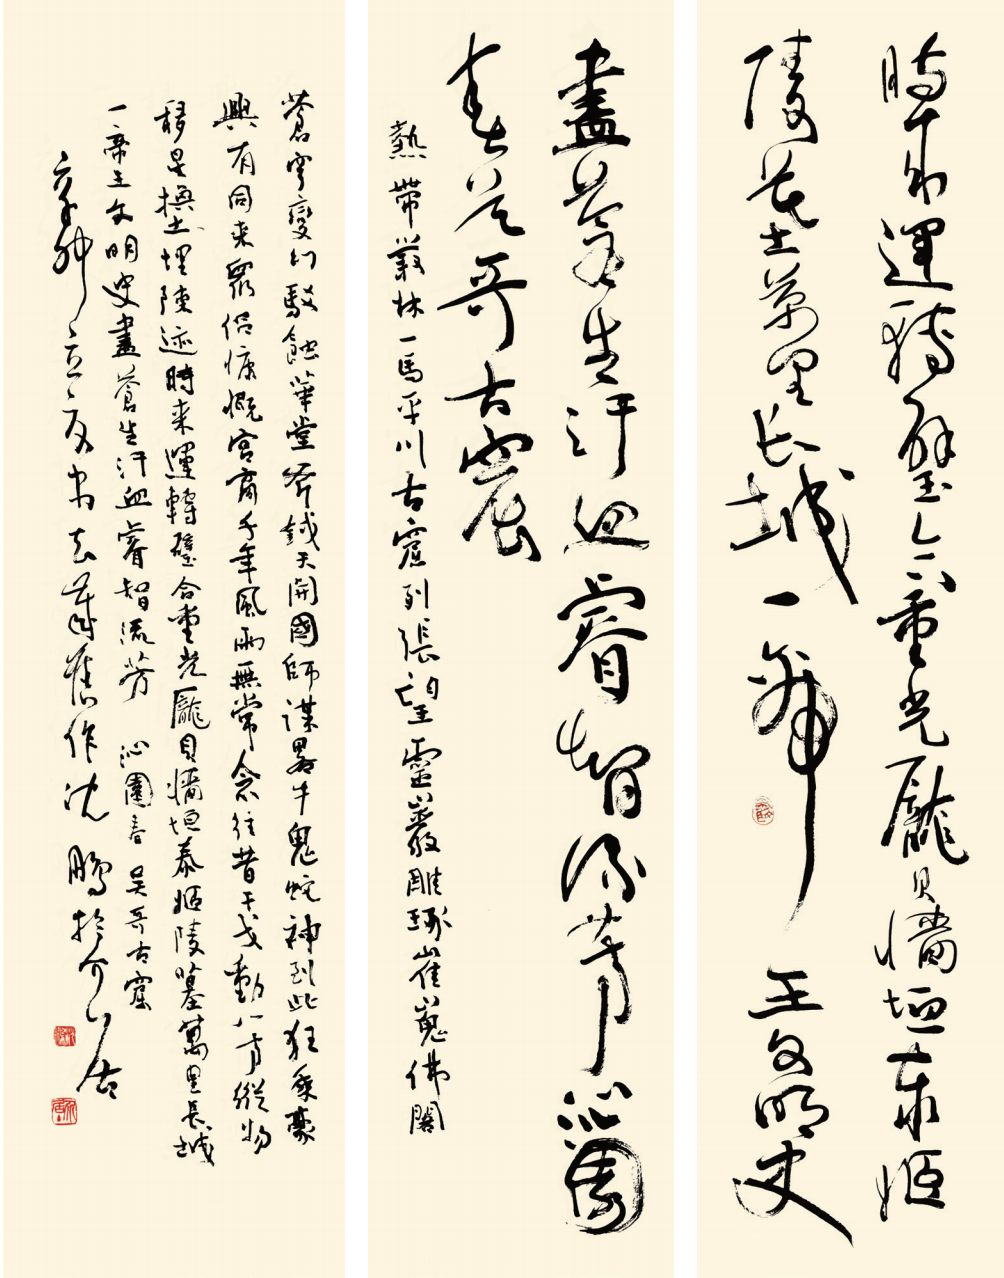 時来運轉璧合重光龐貝牆垣泰姬
陵墓萬里长城一帝王文明史
盡蒼生汗血睿智流芳沁園
春吴哥古窟
熱帶叢林一馬平川古窟列張望靈巖雕琢崔嵬佛閣
蒼穹變幻駁蝕華堂斧鉞天開國師謀略牛鬼蛇神到此狂乘豪
興有同来眾侣慷慨宫商千年風雨無常念往昔干戈動八方縱物
移星換土埋陳迹時来運轉璧合重光龐貝牆垣泰姬陵墓萬里長城
一帝王文明史盡蒼生汗血睿智流芳 沁園春 吴哥古窟
辛卯立夏書去歲舊作沈鵬於介居